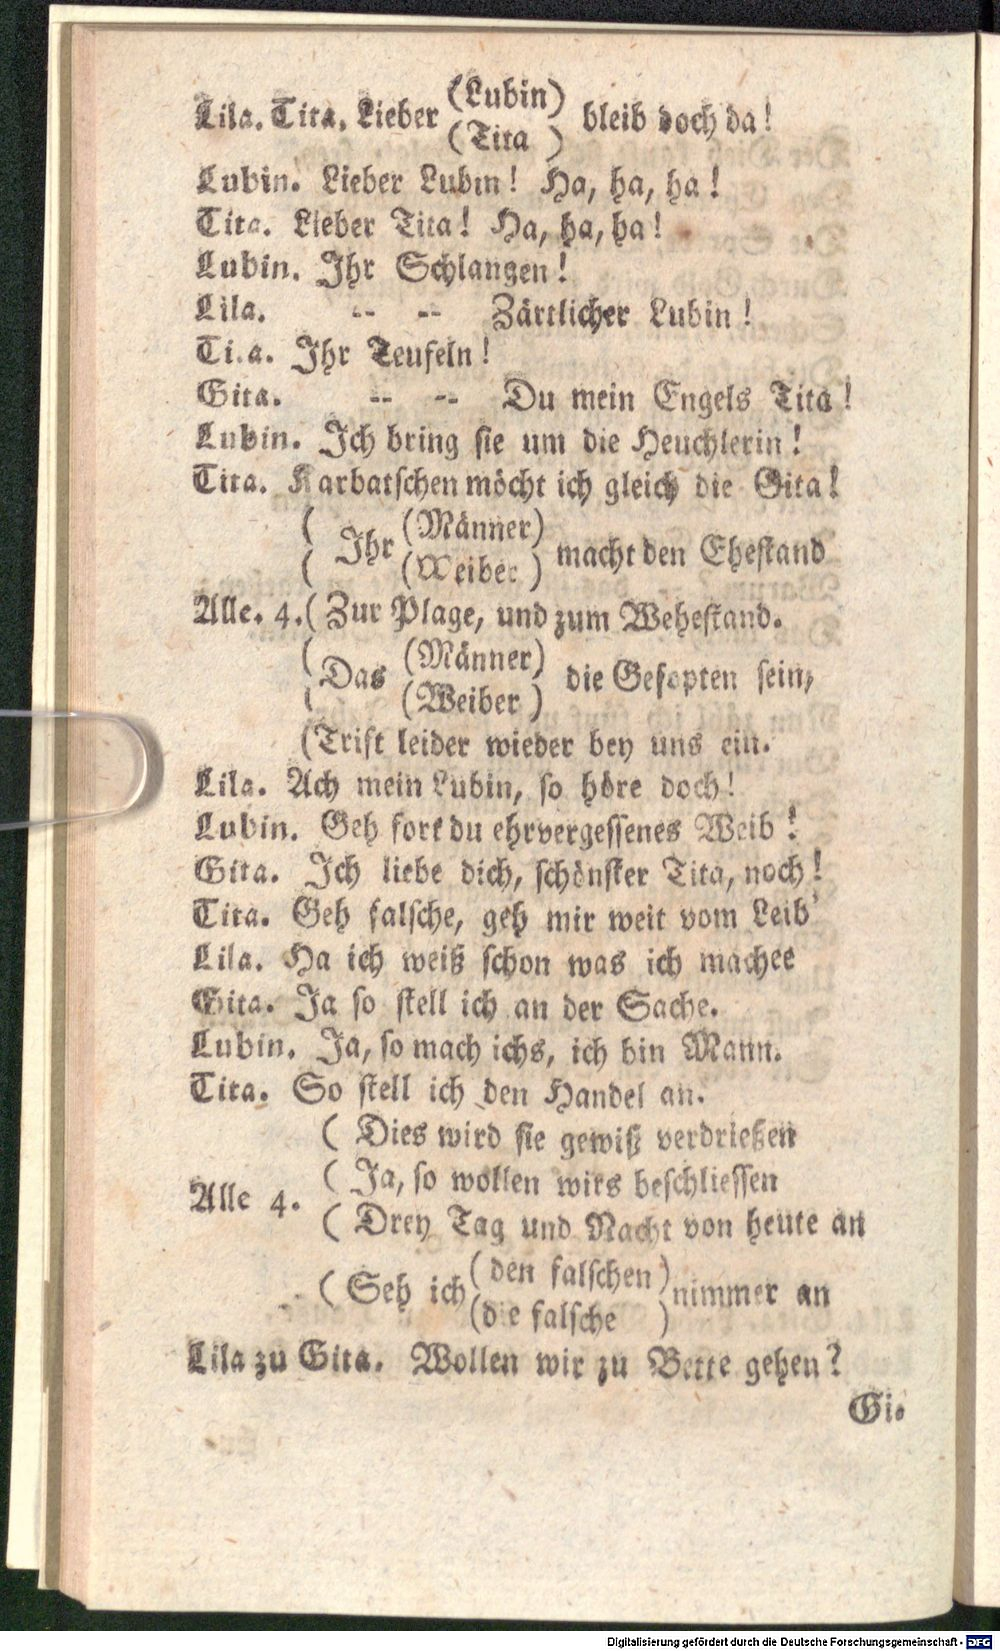 (Lubin)
Lila. Tita. Lieber bleib doch da!
(Tita )
Lubin. Lieber Lubin! Ha, ha, ha!
Tita. Lieber Tita! Ha, ha, ha!
Lubin. Ihr Schlangen!
Lila. -- -- Zärtlicher Lubin!
Tita. Ihr Teufeln!
Gita. -- -- Du mein Engels Tita!
Lubin. Ich bring sie um die Heuchlerin!
Tita. Karbatschen möcht ich gleich die Gita!
( Ihr (Männer) macht den Ehestand
( (Weiber )
Alle. 4. ( Zur Plage, und zum Wehestand.
( Das (Männer) die Gefopten sein,
( (Weiber )
(Trift leider wieder bey uns ein.
Lila. Ach mein Lubin, so höre doch!
Lubin. Geh fort du ehrvergessenes Weib!
Gita. Ich liebe dich, schönster Tita, noch!
Tita. Geh falsche, geh mir weit vom Leib
Lila. Ha ich weiß schon was ich machee
Gita. Ja so stell ich an der Sache.
Lubin. Ja, so mach ichs, ich bin Mann.
Tita. So stell ich den Handel an.
( Dies wird sie gewiß verdrießen
( Ja, so wollen wirs beschliessen
Alle 4.
( Drey Tag und Nacht von heute an
( Seh ich (den falschen) nimmer an
(die falsche )
Lila zu Gita. Wollen wir zu Bette gehen?
Gi-
Digitalisierung gefördert durch die Deutsche Forschungsgemeinschaft - DFG